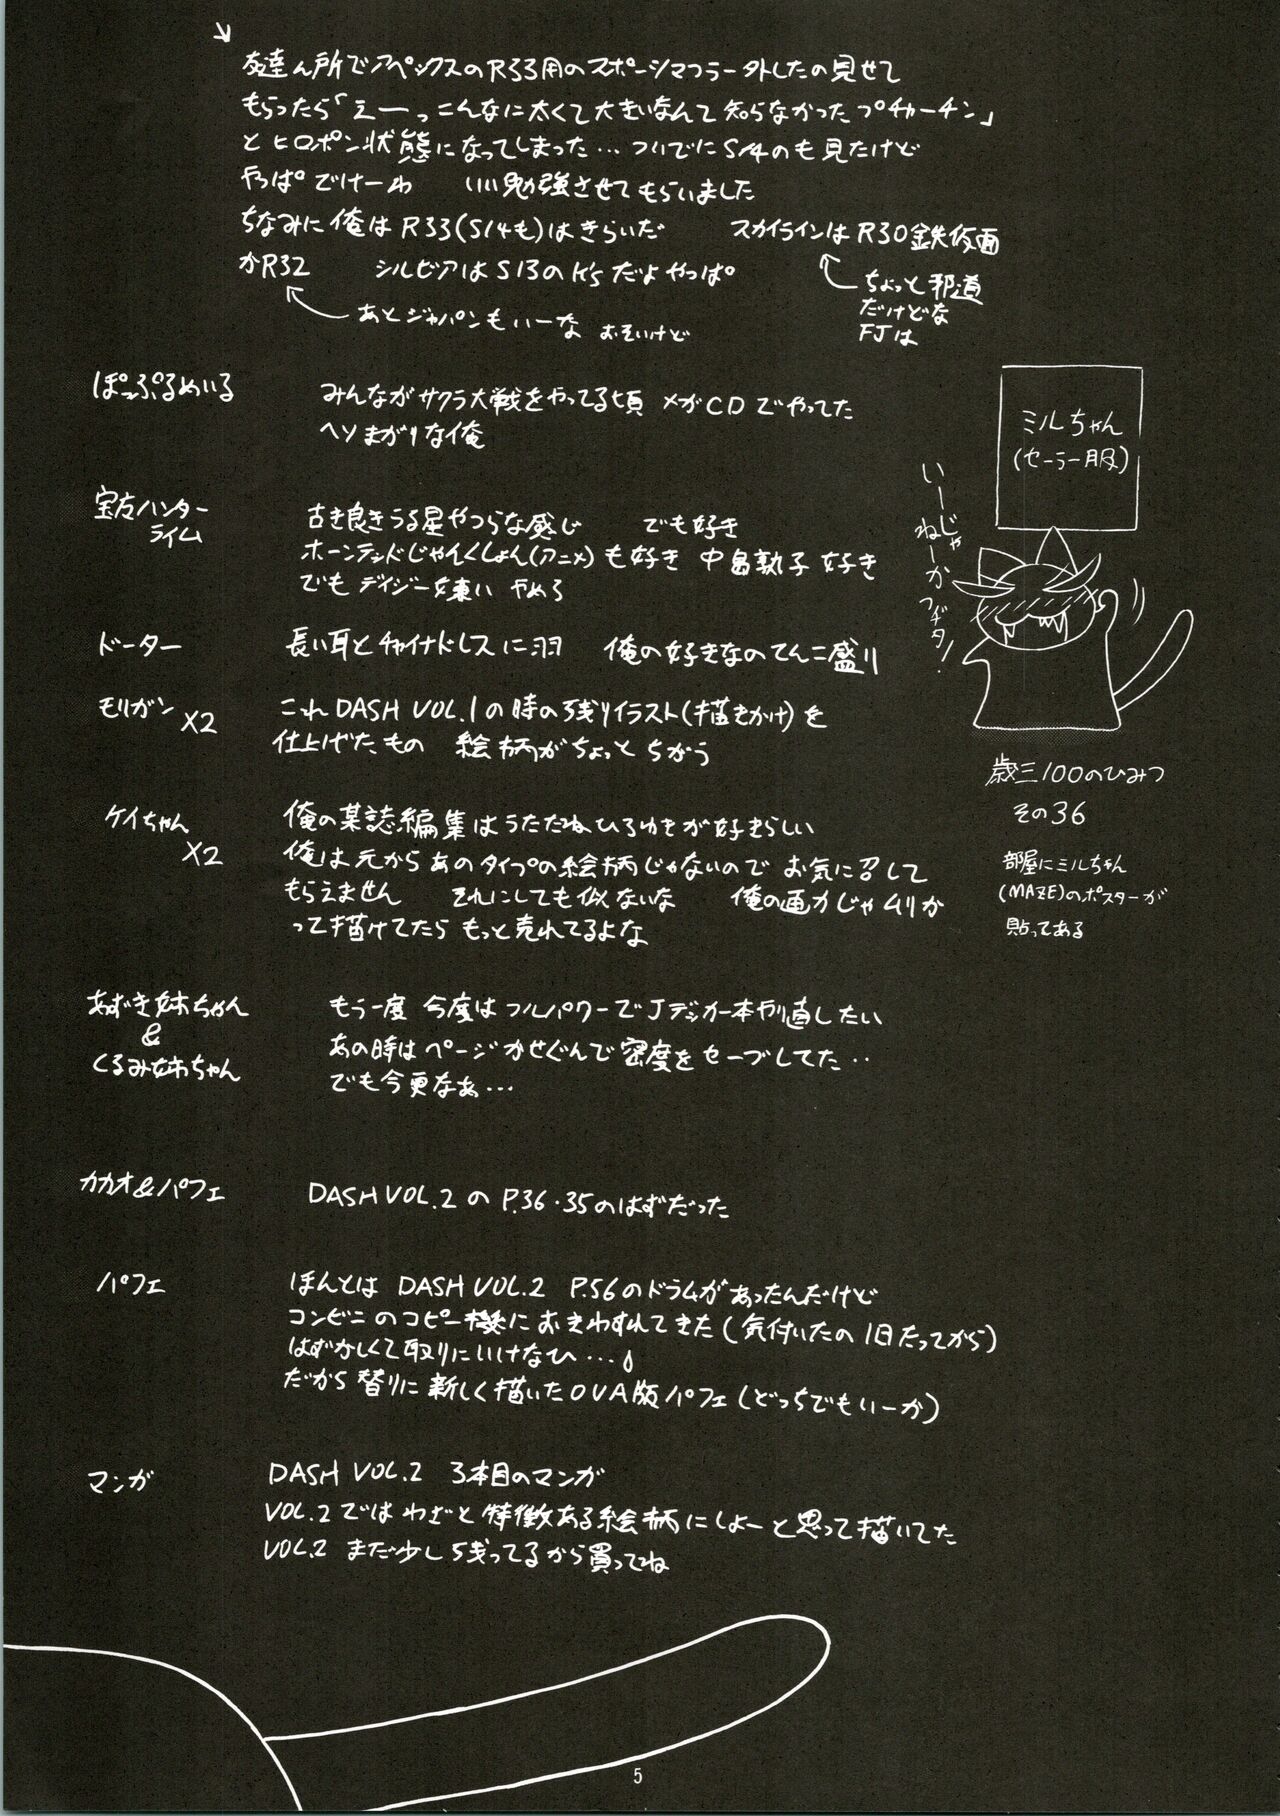 友達ん所でアペックスのR33用のスポーツマフラー外したの見せて
もらったら「えーっこんなに太くて大きいなんて知らなかったプチャーチン」
とヒロポン状態になってしまった…ついでにS14のも見たけど
やっぱでけーわ いい勉強させてもらいました
ちなみに俺はR33(S14も)はきらいだ スカイラインはR30鉄仮面
かR32 シルビアはS13のK'sだよやっぱ
ちょっと邪道
だけどな
FJは
あとジャパンもいーな おそいけど
ぽっぷるめいる
みんながサクラ大戦をやってる頃 メガCDでやってた
ヘソまがりな俺
ミルちゃん
(セーラー服)
いーじゃ
ねーかブヂタノ!
宝友ハンター
ライム
古き良きうる星やつらな感じ でも好き
ホーンテッドじゃんくしょん(アニメ)も好き 中島敦子好き
でもデイジー嫌い やめろ
ドーター
長い耳とチャイナドレスに羽 俺の好きなのてんこ盛り
モリガン X2
これDASH VOL.1の時の残りイラスト(描きかけ)を
仕上げたもの 絵柄がちょっとちがう
歳三100のひみつ
その36
部屋にミルちゃん
(MAZE)のポスターが
貼ってある
ケイちゃん
X2
俺の某誌編集はうたたねひろゆきが好きらしい
俺は元からあのタイプの絵柄じゃないので お気に召して
もらえません それにしても似ないな 俺の画力じゃムリか
って描けてたらもっと売れてるよな
あずき姉ちゃん
&
くるみ姉ちゃん
もう一度 今度はフルパワーでJデッカー本やり直したい
あの時はページかせぐんで密度をセーブしてた‥
でも今更なぁ…
カカオ&パフェ
DASH VOL.2のP.36・35のはずだった
パフェ
ほんとは DASH VOL.2 P.56のドラムがあったんだけど
コンビニのコピー機におきわすれてきた(気付いたの1日たってから)
はずかしくて取りにいけなひ…
だから替りに新しく描いたOVA版パフェ(どっちでもいーか)
マンガ
DASH VOL.2 3本目のマンガ
VOL.2ではわざと特徴ある絵柄にしよーと思って描いてた
VOL.2 まだ少し残ってるから買ってね
5